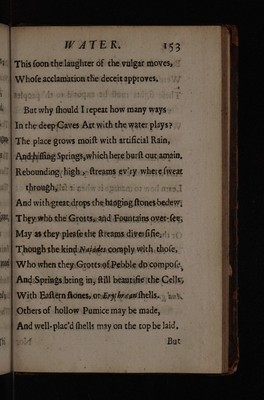 WATER. 153
This ſoon the laughter of the vulgar moves,
Whoſe acclamation the deceit approves.
But why ſhould I repeat how many ways
In the deep Caves Art with the water plays?
The place grows moiſt with artificial Rain,
And hiſſing Springs, which here burſt out amain,
Rebounding high, ſtreams ev'ry where ſweat
through,
And with great drops the hanging ſtones bedew;
They who the Grotts, and Fountains over-ſee,
May as they pleaſe the ſtreams diverſifie,
Though the kind Najades comply with thoſe,
Who when they Grotts of Pebble do compoſe,
And Springs bring in, ſtill beautifie the Cells;
With Eaſtern ſtones, or Erythræan ſhells.
Others of hollow Pumice may be made,
And well-plac'd ſhells may on the top be laid.
But